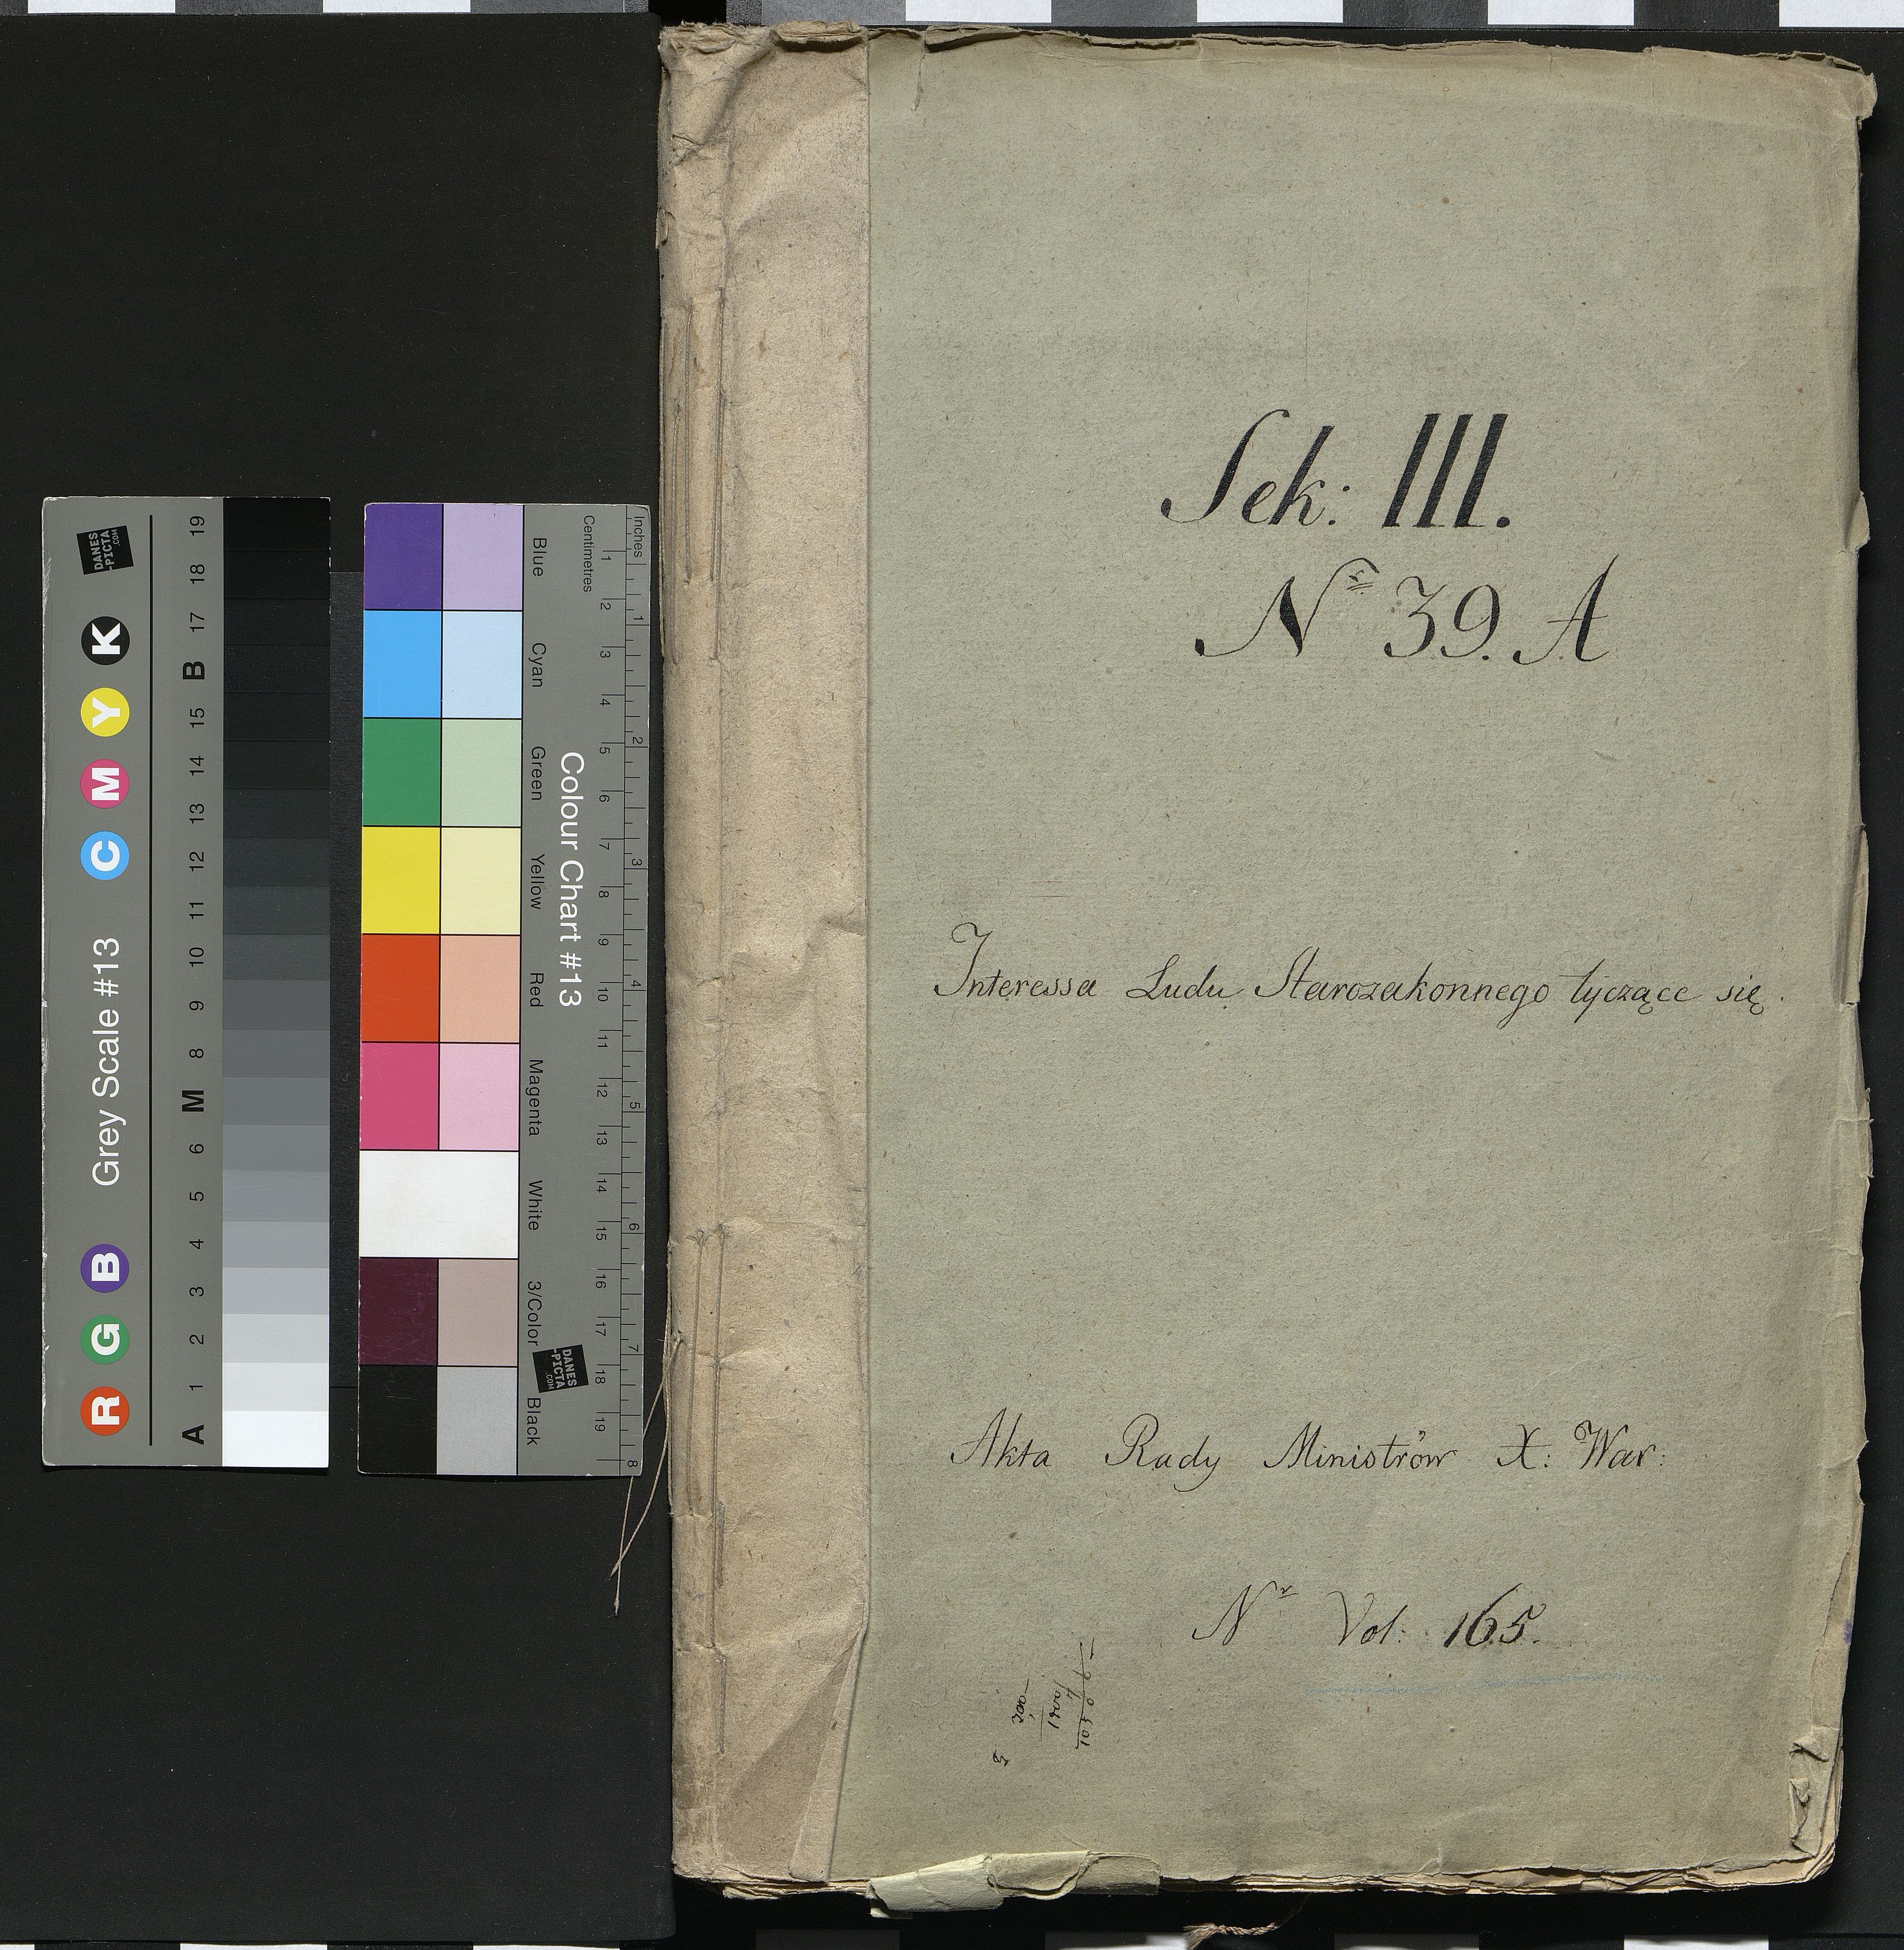 Sek: III.
Nr 39. A
Interessa Ludu Starozakonnego tyczące się.
Akta Rady Ministrów X: War:
Nr Vol: 165.
Grey Scale #13
R G B C M Y K
A 1 2 3 4 5 6 M 8 9 10 11 12 13 14 15 B 17 18 19
DANES
-PICTA
.COM
Colour Chart #13
Blue Cyan Green Yellow Red Magenta White 3/Color Black
Centimetres 1 2 3 4 5 6 7 8 9 10 11 12 13 14 15 16 17 18 19
Inches 1 2 3 4 5 6 7 8
DANES
-PICTA
.COM